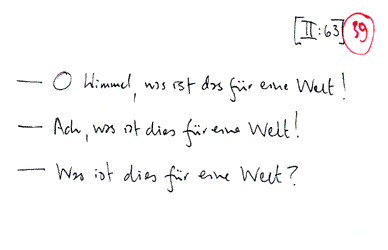 [II:63] 39
— O Himmel, was ist das für eine Welt!
— Ach, was ist dies für eine Welt!
— Was ist dies für eine Welt?